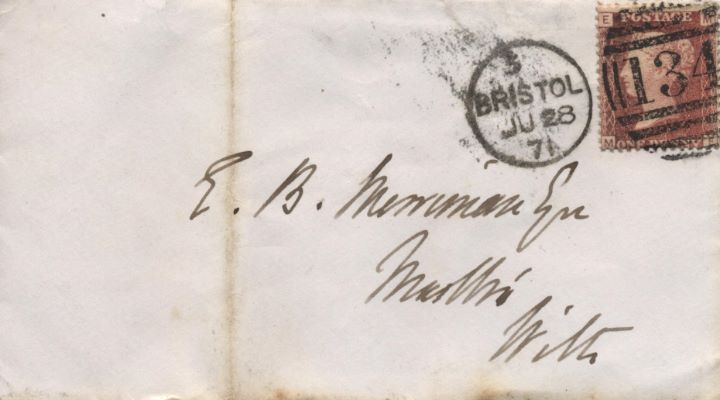 E M
POSTAGE
134
ONE PENNY
M E
5
BRISTOL
JU 28
71
E. B. Merriman Esq
Wilts